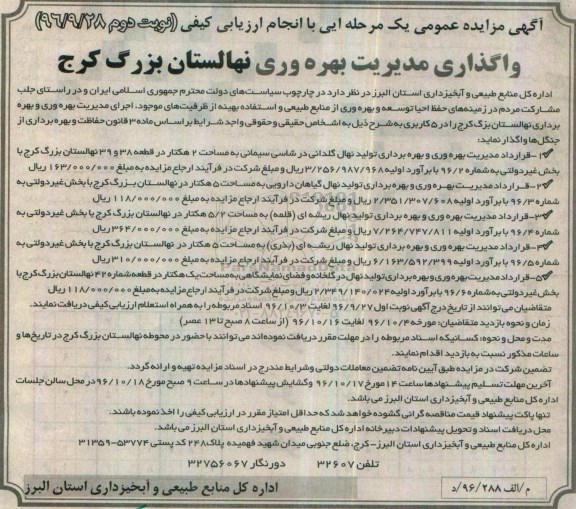 آگهی مزایده عمومی یک مرحله ایی با انجام ارزیابی کیفی (نوبت دوم ۹۶/۹/۲۸)
واگذاری مدیریت بهره وری نهالستان بزرگ کرج
اداره کل منابع طبیعی و آبخیزداری استان البرز در نظر دارد در چارچوب سیاست‌های دولت محترم جمهوری اسلامی ایران و در راستای جلب
مشارکت مردم در زمینه‌های حفظ احیا توسعه و بهره وری از منابع طبیعی و استفاده بهینه از ظرفیت‌های موجود، اجرای مدیریت بهره وری و بهره
برداری نهالستان بزگ کرج را در ۵ کاربری به شرح ذیل به اشخاص حقیقی و حقوقی واجد شرایط بر اساس ماده ۳ قانون حفاظت و بهره برداری از
جنگلها واگذار نماید:
۱-قرارداد مدیریت بهره وری و بهره برداری تولید نهال گلدانی در شاسی سیمانی به مساحت ۲ هکتار در قطعه ۳۸ و ۳۹ نهالستان بزرگ کرج با
بخش غیردولتی به شماره ۹۶/۲ با برآورد اولیه ۳/۲۵۶/۹۸۷/۹۶۸ ریال و مبلغ شرکت در فرآیند ارجاع مزایده به مبلغ ۱۶۳/۰۰۰/۰۰۰ ریال
۲-قرارداد مدیریت بهره وری و بهره برداری تولید نهال گیاهان دارویی به مساحت ۵ هکتار در نهالستان بزرگ کرج با بخش غیردولتی به
شماره ۹۶/۳ با برآورد اولیه ۲/۳۵۱/۳۰۷/۶۰۸ ریال و مبلغ شرکت در فرآیند ارجاع مزایده به مبلغ ۱۱۸/۰۰۰/۰۰۰ ریال
۳-قرارداد مدیریت بهره وری و بهره برداری تولید نهال ریشه ای (قلمه) به مساحت ۵/۲ هکتار در نهالستان بزرگ کرج با بخش غیردولتی به
شماره ۹۶/۴ با برآورد اولیه ۷/۲۶۴/۷۴۷/۸۱۱ ریال و مبلغ شرکت در فرآیند ارجاع مزایده به مبلغ ۳۶۴/۰۰۰/۰۰۰ ریال
۴-قرارداد مدیریت بهره وری و بهره برداری تولید نهال ریشه ای (بذری) به مساحت ۵ هکتار در نهالستان بزرگ کرج با بخش غیردولتی به
شماره ۹۶/۵ با برآورد اولیه ۶/۱۶۳/۵۹۲/۳۹۹ ریال و مبلغ شرکت در فرآیند ارجاع مزایده به مبلغ ۳۱۰/۰۰۰/۰۰۰ ریال
۵-قرارداد مدیریت بهره وری و بهره برداری تولید نهال در گلخانه و فضای نمایشگاهی به مساحت یک هکتار در قطعه شماره ۴۲ نهالستان بزرگ کرج با
بخش غیردولتی به شماره ۹۶/۶ با برآورد اولیه ۲/۳۴۹/۱۴۰/۰۲۴ ریال و مبلغ شرکت در فرآیند ارجاع مزایده به مبلغ ۱۱۸/۰۰۰/۰۰۰ ریال
متقاضیان می توانند از تاریخ درج آگهی نوبت اول ۹۶/۹/۲۷ لغایت ۹۶/۱۰/۳ اسناد مربوطه را به همراه استعلام ارزیابی کیفی دریافت نمایند.
زمان و نحوه بازدید متقاضیان: مورخه ۹۶/۱۰/۴ لغایت ۹۶/۱۰/۱۶ (از ساعت ۸ صبح تا ۱۳ عصر)
مدت و محل و نحوه: کسانیکه اسناد مربوطه را در مهلت مقرر دریافت نموده‌اند می توانند با حضور در محوطه نهالستان بزرگ کرج در تاریخ‌ها و
ساعات مذکور نسبت به بازدید اقدام نمایند.
تضمین شرکت در مزایده طبق آیین نامه تضمین معاملات دولتی و شرایط مندرج در اسناد مزایده تهیه و ارائه گردد.
آخرین مهلت تسلیم پیشنهادها ساعت ۱۴ مورخ ۹۶/۱۰/۱۷ وگشایش پیشنهادها در ساعت ۹ صبح مورخ ۹۶/۱۰/۱۸ در محل سالن جلسات
اداره کل منابع طبیعی و آبخیزداری استان البرز می باشد.
تنها پاکت پیشنهاد قیمت مناقصه گرانی گشوده خواهد شد که حداقل امتیاز مقرر در ارزیابی کیفی را اخذ نموده باشند.
محل دریافت اسناد و تحویل پیشنهادات دبیرخانه اداره کل منابع طبیعی و آبخیزداری استان البرز می باشد.
اداره کل منابع طبیعی و آبخیزداری استان البرز-کرج، ضلع جنوبی میدان شهید فهمیده پلاک ۲۴۸ کد پستی ۵۳۷۷۴-۳۱۳۵۹
تلفن ۳۲۶۰۷ دورنگار ۳۲۷۵۶۰۶۷
اداره کل منابع طبیعی و آبخیزداری استان البرز
م/الف ۹۶/۲۸۸/د